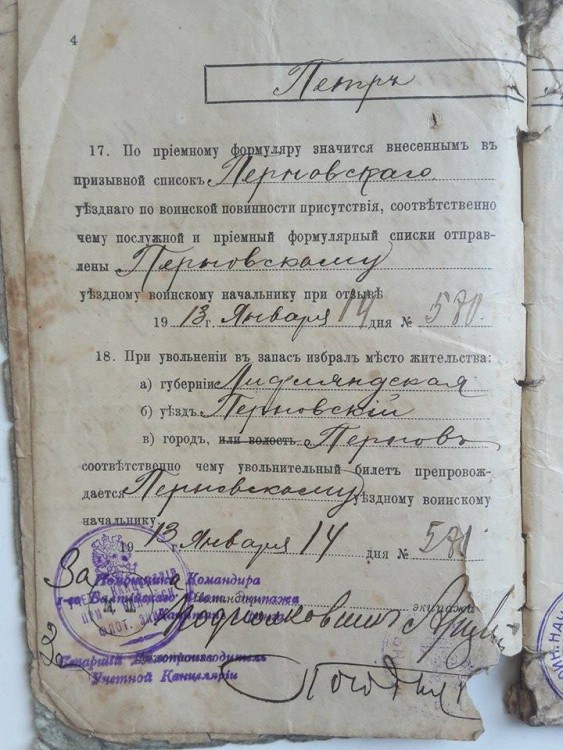 4
Петръ
17. По пріемному формуляру значится внесеннымъ въ
призывной списокъ Перновскаго
уѣзднаго по воинской повинности присутствія, соотвѣтственно
чему послужной и пріемный формулярный списки отправ-
лены Перновскому
уѣздному воинскому начальнику при отзывѣ
1913 г. Января 14 дня № 580.
18. При увольненіи въ запасъ избралъ мѣсто жительства:
а) губернію Лифляндская
б) уѣздъ Перновскій
в) городъ, или волость Перновъ
соотвѣтственно чему увольнительный билетъ препровож-
дается Перновскому уѣздному воинскому
начальнику
1913 г. Января 14 дня № 581
За Помощника Командира
1-го Балтійскаго экипажа
экипажа
За Старшій Дѣлопроизводитель
Учетной Канцеляріи